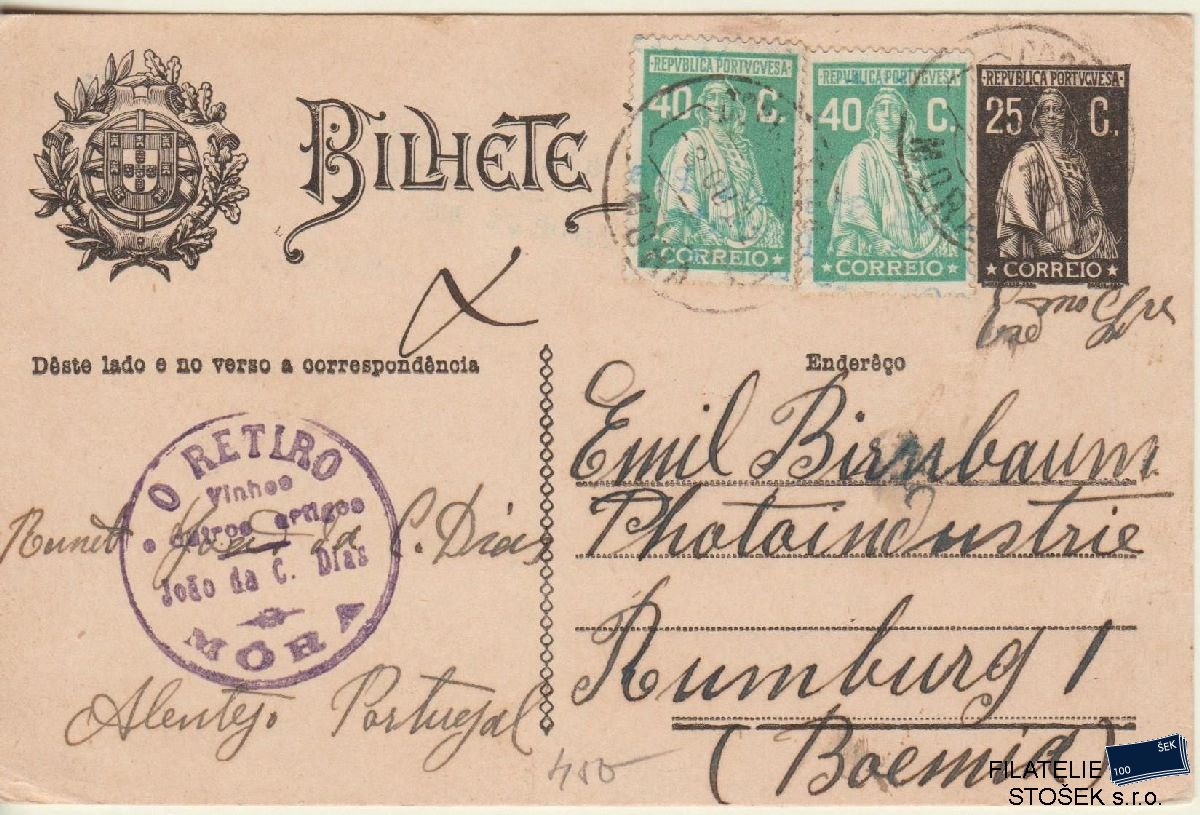 BILHETE
REPVBLICA PORTVGVESA
40 C.
CORREIO
REPVBLICA PORTVGVESA
40 C.
CORREIO
REPVBLICA PORTVGVESA
25 C.
CORREIO
MORA
MORA
Dêste lado e no verso a correspondência
Enderêço
O RETIRO
vinhos
e outros artigos
João da C. Dias
MORA
da C. Dias
Alentejo Portugal
Emil Birnbaum
Photoindustrie
Rumburg 1
(Boemia)
ŠEK
100
FILATELIE
STOŠEK s.r.o.